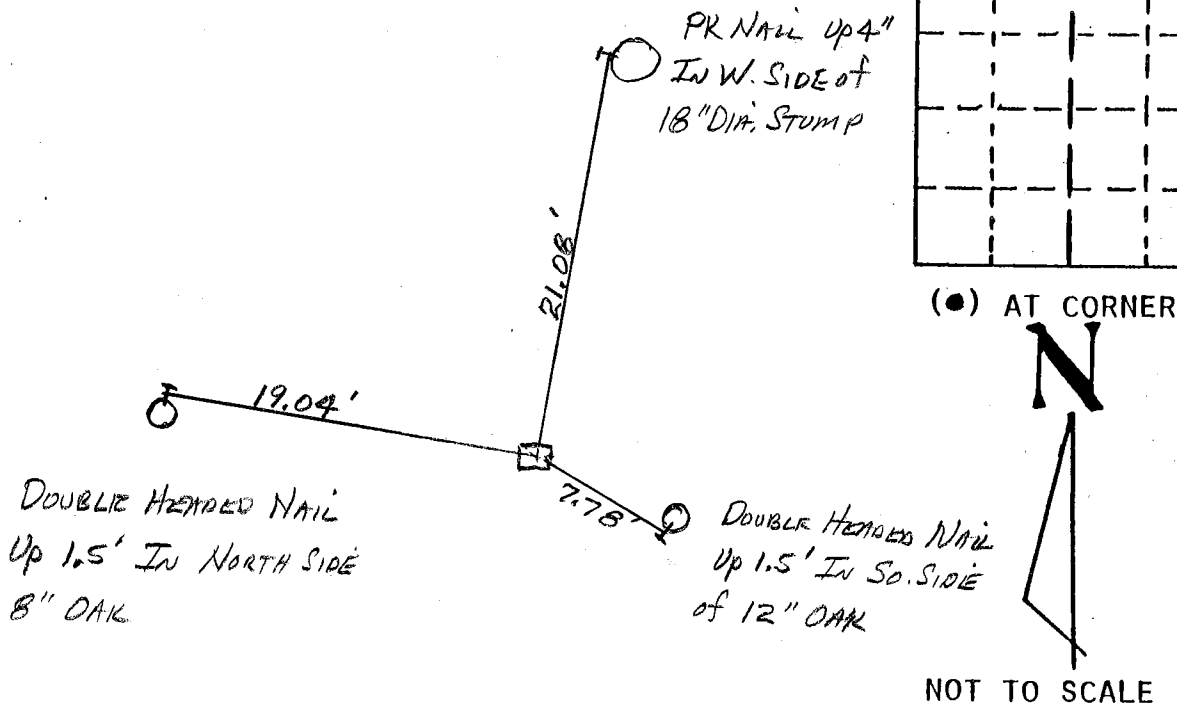 PK NAIL Up 4"
IN W. SIDE of
18" DIA. STUMP
21.08'
(●) AT CORNER
N
19.04'
7.78'
DOUBLE HEADED NAIL
Up 1.5' IN NORTH SIDE
8" OAK
DOUBLE HEADED NAIL
Up 1.5' IN SO. SIDE
of 12" OAK
NOT TO SCALE